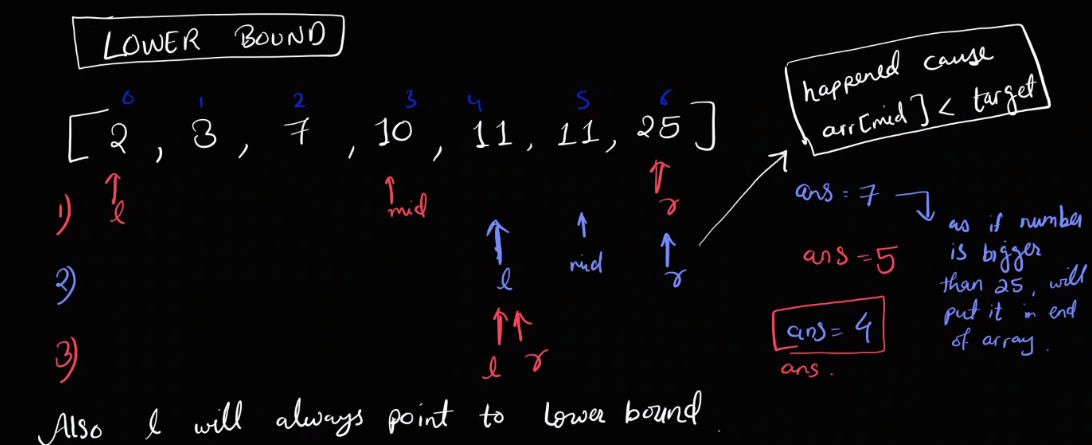 LOWER BOUND
0 1 2 3 4 5 6
[2, 3, 7, 10, 11, 11, 25]
1) l mid r
2) l mid r
3) l r
happened cause
arr[mid] < target
ans = 7
as if number
is bigger
than 25, will
put it in end
of array.
ans = 5
ans = 4
ans.
Also l will always point to lower bound.